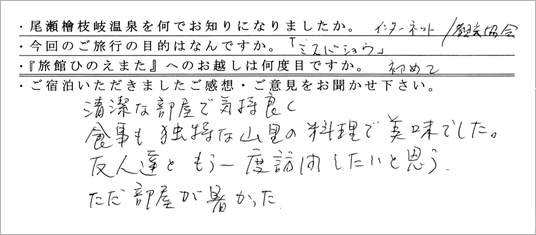 ・尾瀬檜枝岐温泉を何でお知りになりましたか。 インターネット/観光協会
・今回のご旅行の目的はなんですか。「ミズバショウ」
・『旅館ひのえまた』へのお越しは何度目ですか。 初めて
・ご宿泊いただきましたご感想・ご意見をお聞かせ下さい。
清潔な部屋で気持良く
食事も独特な山里の料理で美味でした。
友人達ともう一度訪問したいと思う.
ただ部屋が暑かった.